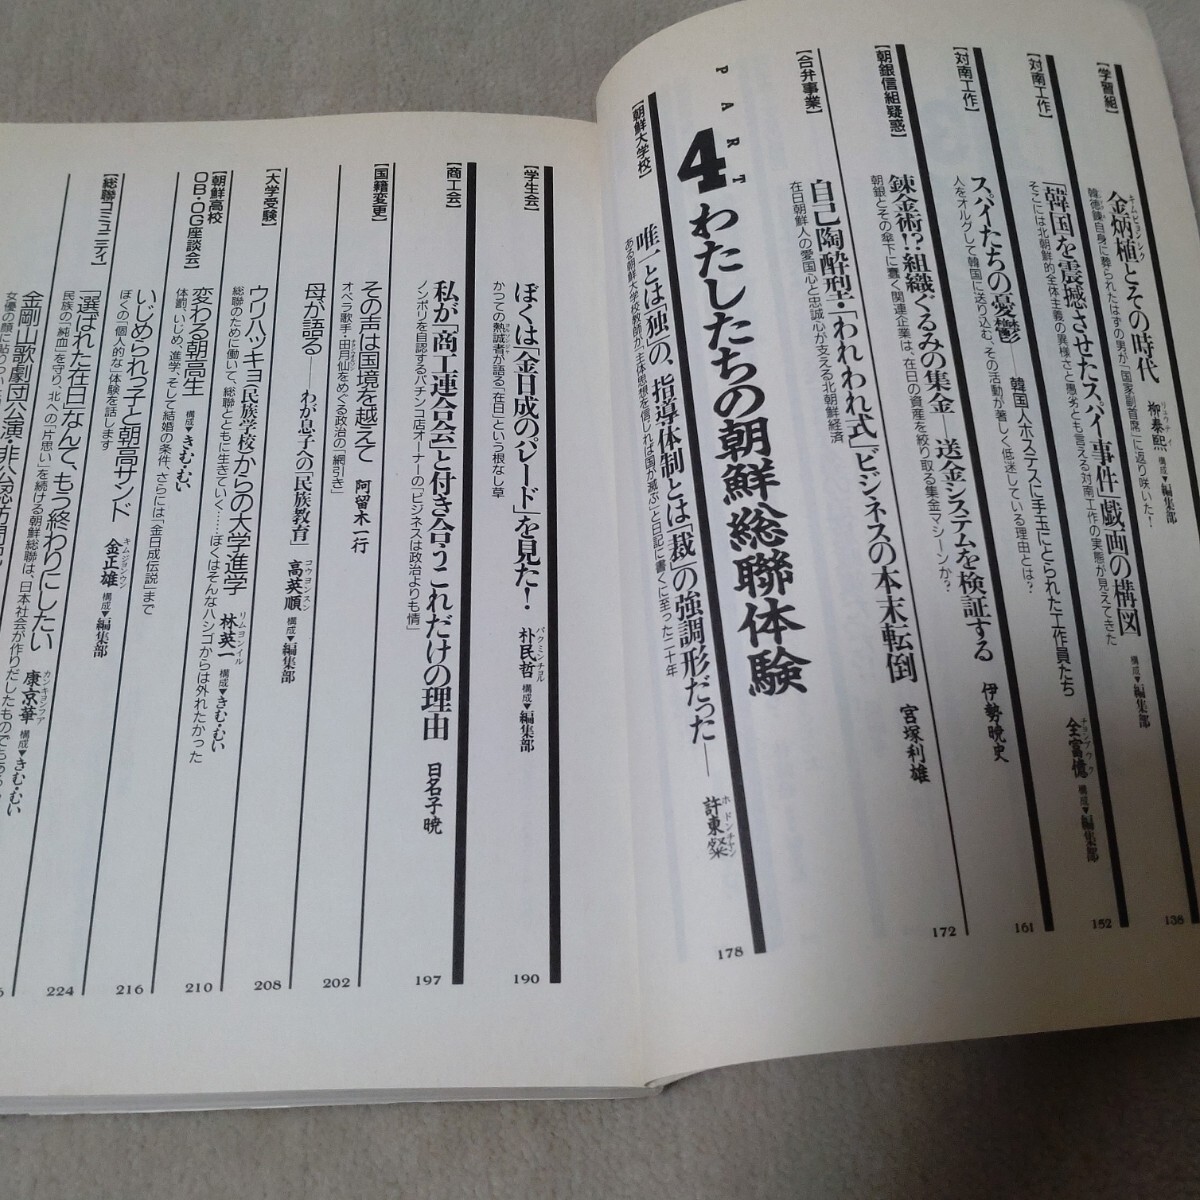 【学習組】
金炳植とその時代
キムビョンシク
柳泰熙 構成▼編集部
韓徳銖自身に葬られたはずの男が「国家副首席」に返り咲いた!
138
【対南工作】
「韓国」を震撼させたスパイ事件」戯画の構図
構成▼編集部
そこには北朝鮮的全体主義の異様さと愚劣とも言える対南工作の実態が見えてきた
152
【対南工作】
スパイたちの憂鬱——韓国人ホステスに手玉にとられた工作員たち
全富億 構成▼編集部
人をオルグして韓国に送り込む、その活動が著しく低迷している理由とは?
161
【朝銀信組疑惑】
錬金術!?組織ぐるみの集金——送金システムを検証する
伊勢暁史
朝銀とその傘下に蠢く関連企業は、在日の資産を絞り取る集金マシーンか?
172
【合弁事業】
自己陶酔型・「われわれ式」ビジネスの本末転倒
宮塚利雄
在日朝鮮人の愛国心と忠誠心が支える北朝鮮経済
PART
4 わたしたちの朝鮮総聯体験
【朝鮮大学校】
「唯一とは独」の、指導体制とは「裁」の強調形だった——
許東燦
ホドンチャン
ある朝鮮大学校教師が、「主体思想を信じれば国が滅ぶ」と日記に書くに至った二十年
178
【学生会】
ぼくは「金日成のパレード」を見た!
朴民哲 構成▼編集部
パクミンチョル
かつての熱誠者が語る「在日」という根なし草
190
【商工会】
私が「商工連合会」と付き合うこれだけの理由
日名子暁
ノンポリを自認するパチンコ店オーナーの「ビジネスは政治よりも情」
197
【国籍変更】
その声は国境を越えて
阿留木一行
オペラ歌手・田月仙をめぐる政治の「綱引き」
202
母が語る——わが息子への「民族教育」
高英順 構成▼編集部
コウヨンスン
【大学受験】
ウリハッキョ(民族学校)からの大学進学
林英一 構成▼きむ・むい
リムヨンイル
総聯のために働いて、総聯とともに生きていく……ぼくはそんなハシゴからは外れたかった
208
【朝鮮高校OB・OG座談会】
変わる朝高生
構成▼きむ・むい
体罰、いじめ、進学、そして結婚の条件、さらには「金日成伝説」まで
210
いじめられっ子と朝高サンド
金正雄 構成▼編集部
キムジョンウン
ぼくの「個人的な」体験を話します
216
【総聯コミュニティ】
「選ばれた在日」なんて、もう終わりにしたい
康京華 構成▼きむ・むい
カンキョンファ
民族の「純血」を守り、北への「片思い」を続ける朝鮮総聯は、日本社会が作りだしたものでもある
224
金剛山歌劇団公演・非公認訪問記